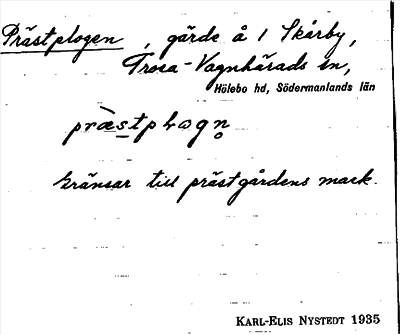 Prästplogen, gärde å 1 Skärby,
Trosa-Vagnhärads sn,
Hölebo hd, Södermanlands län
præ̀stplωgn̥
gränsar till prästgårdens mark.
KARL-ELIS NYSTEDT 1935